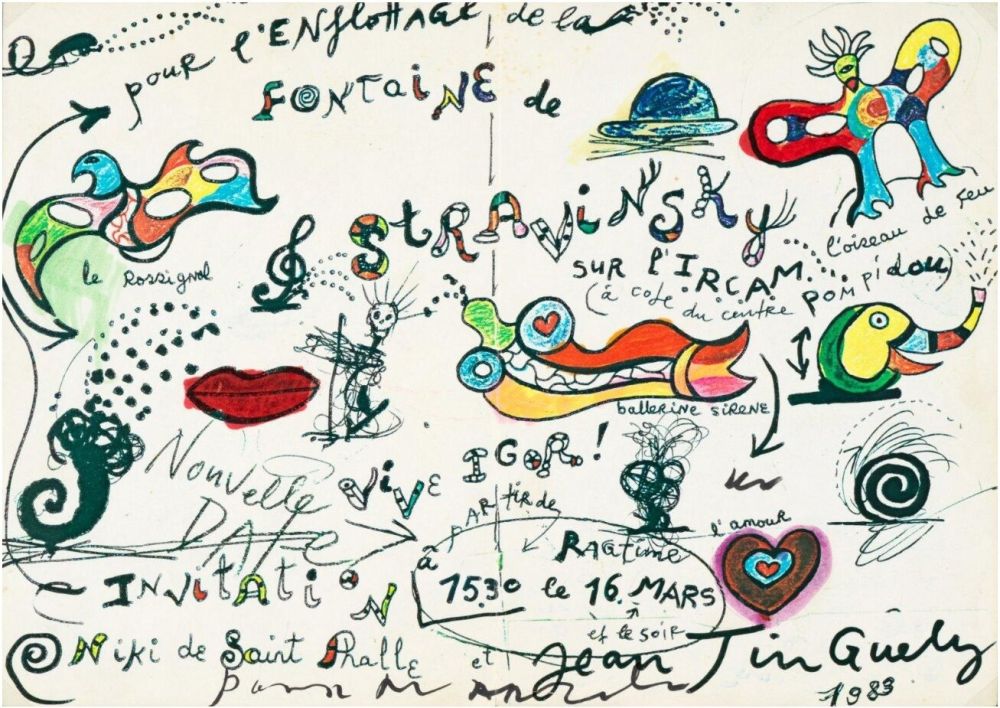 pour l'ENflottAGE de la
FONTaiNE de
STRAViNSky
le Rossignol
l'oiseau de feu
sur l'IRCAM
(à coté du centre POMPidou)
ballerine sirene
ViVE IGOR !
Nouvelle
DATE
à PARtir de
l'amour
RAGtime
15.30 le 16. MARS
et le soir
INVitAtiON
Niki de Saint Phalle et Jean TinGuely
1983